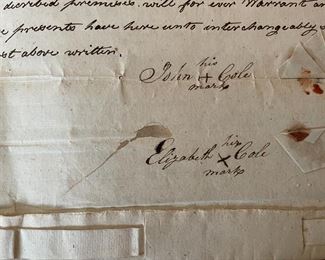 decribed premises. will for ever Warrant an
e presents have here unto interchangeably s
st above written.
his
John + Cole
mark
his
Elizabeth x Cole
mark